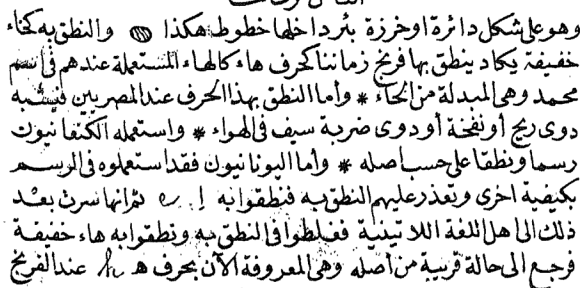 وهو على شكل دائرة او خرزة بئر داخلها خطوط هكذا والنطق به كخاء
خفيفة يكاد ينطق بها فرنج زماننا كحرف هاء كالهاء المستعملة عندهم فى اسم
محمد وهى المبدلة من الحاء * وأما النطق بهذا الحرف عند المصريين فيشبه
دوى ريح أو نفخة أو دوى ضربة سيف فى الهواء * واستعمله الكنعانيون
رسما ونطقا على حسب اصله * وأما اليونانيون فقد استعملوه فى الرسم
بكيفية اخرى وتعذر عليهم النطق به فنطقوا به ثم انها سرت بعد
ذلك الى اهل اللغة اللاتينية فغلطوا فى النطق به ونطقوا به هاء خفيفة
فرجع الى حالة قريبة من أصله وهى المعروفة الآن بحرف ه h عند الفرنج